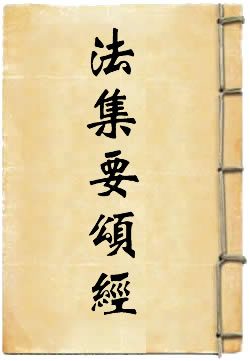 法集要頌經